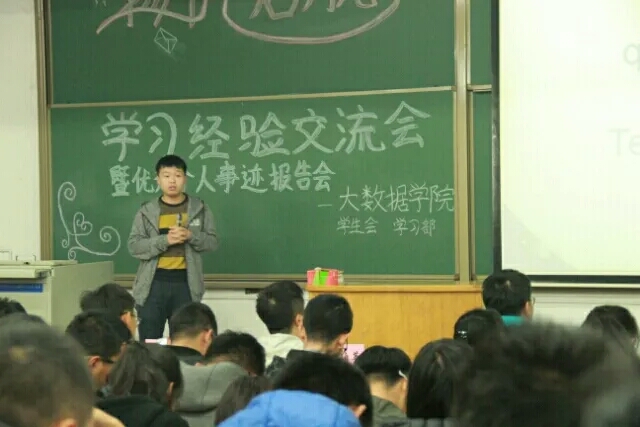 学习经验交流会
暨优 人事迹报告会
—大数据学院
学生会 学习部